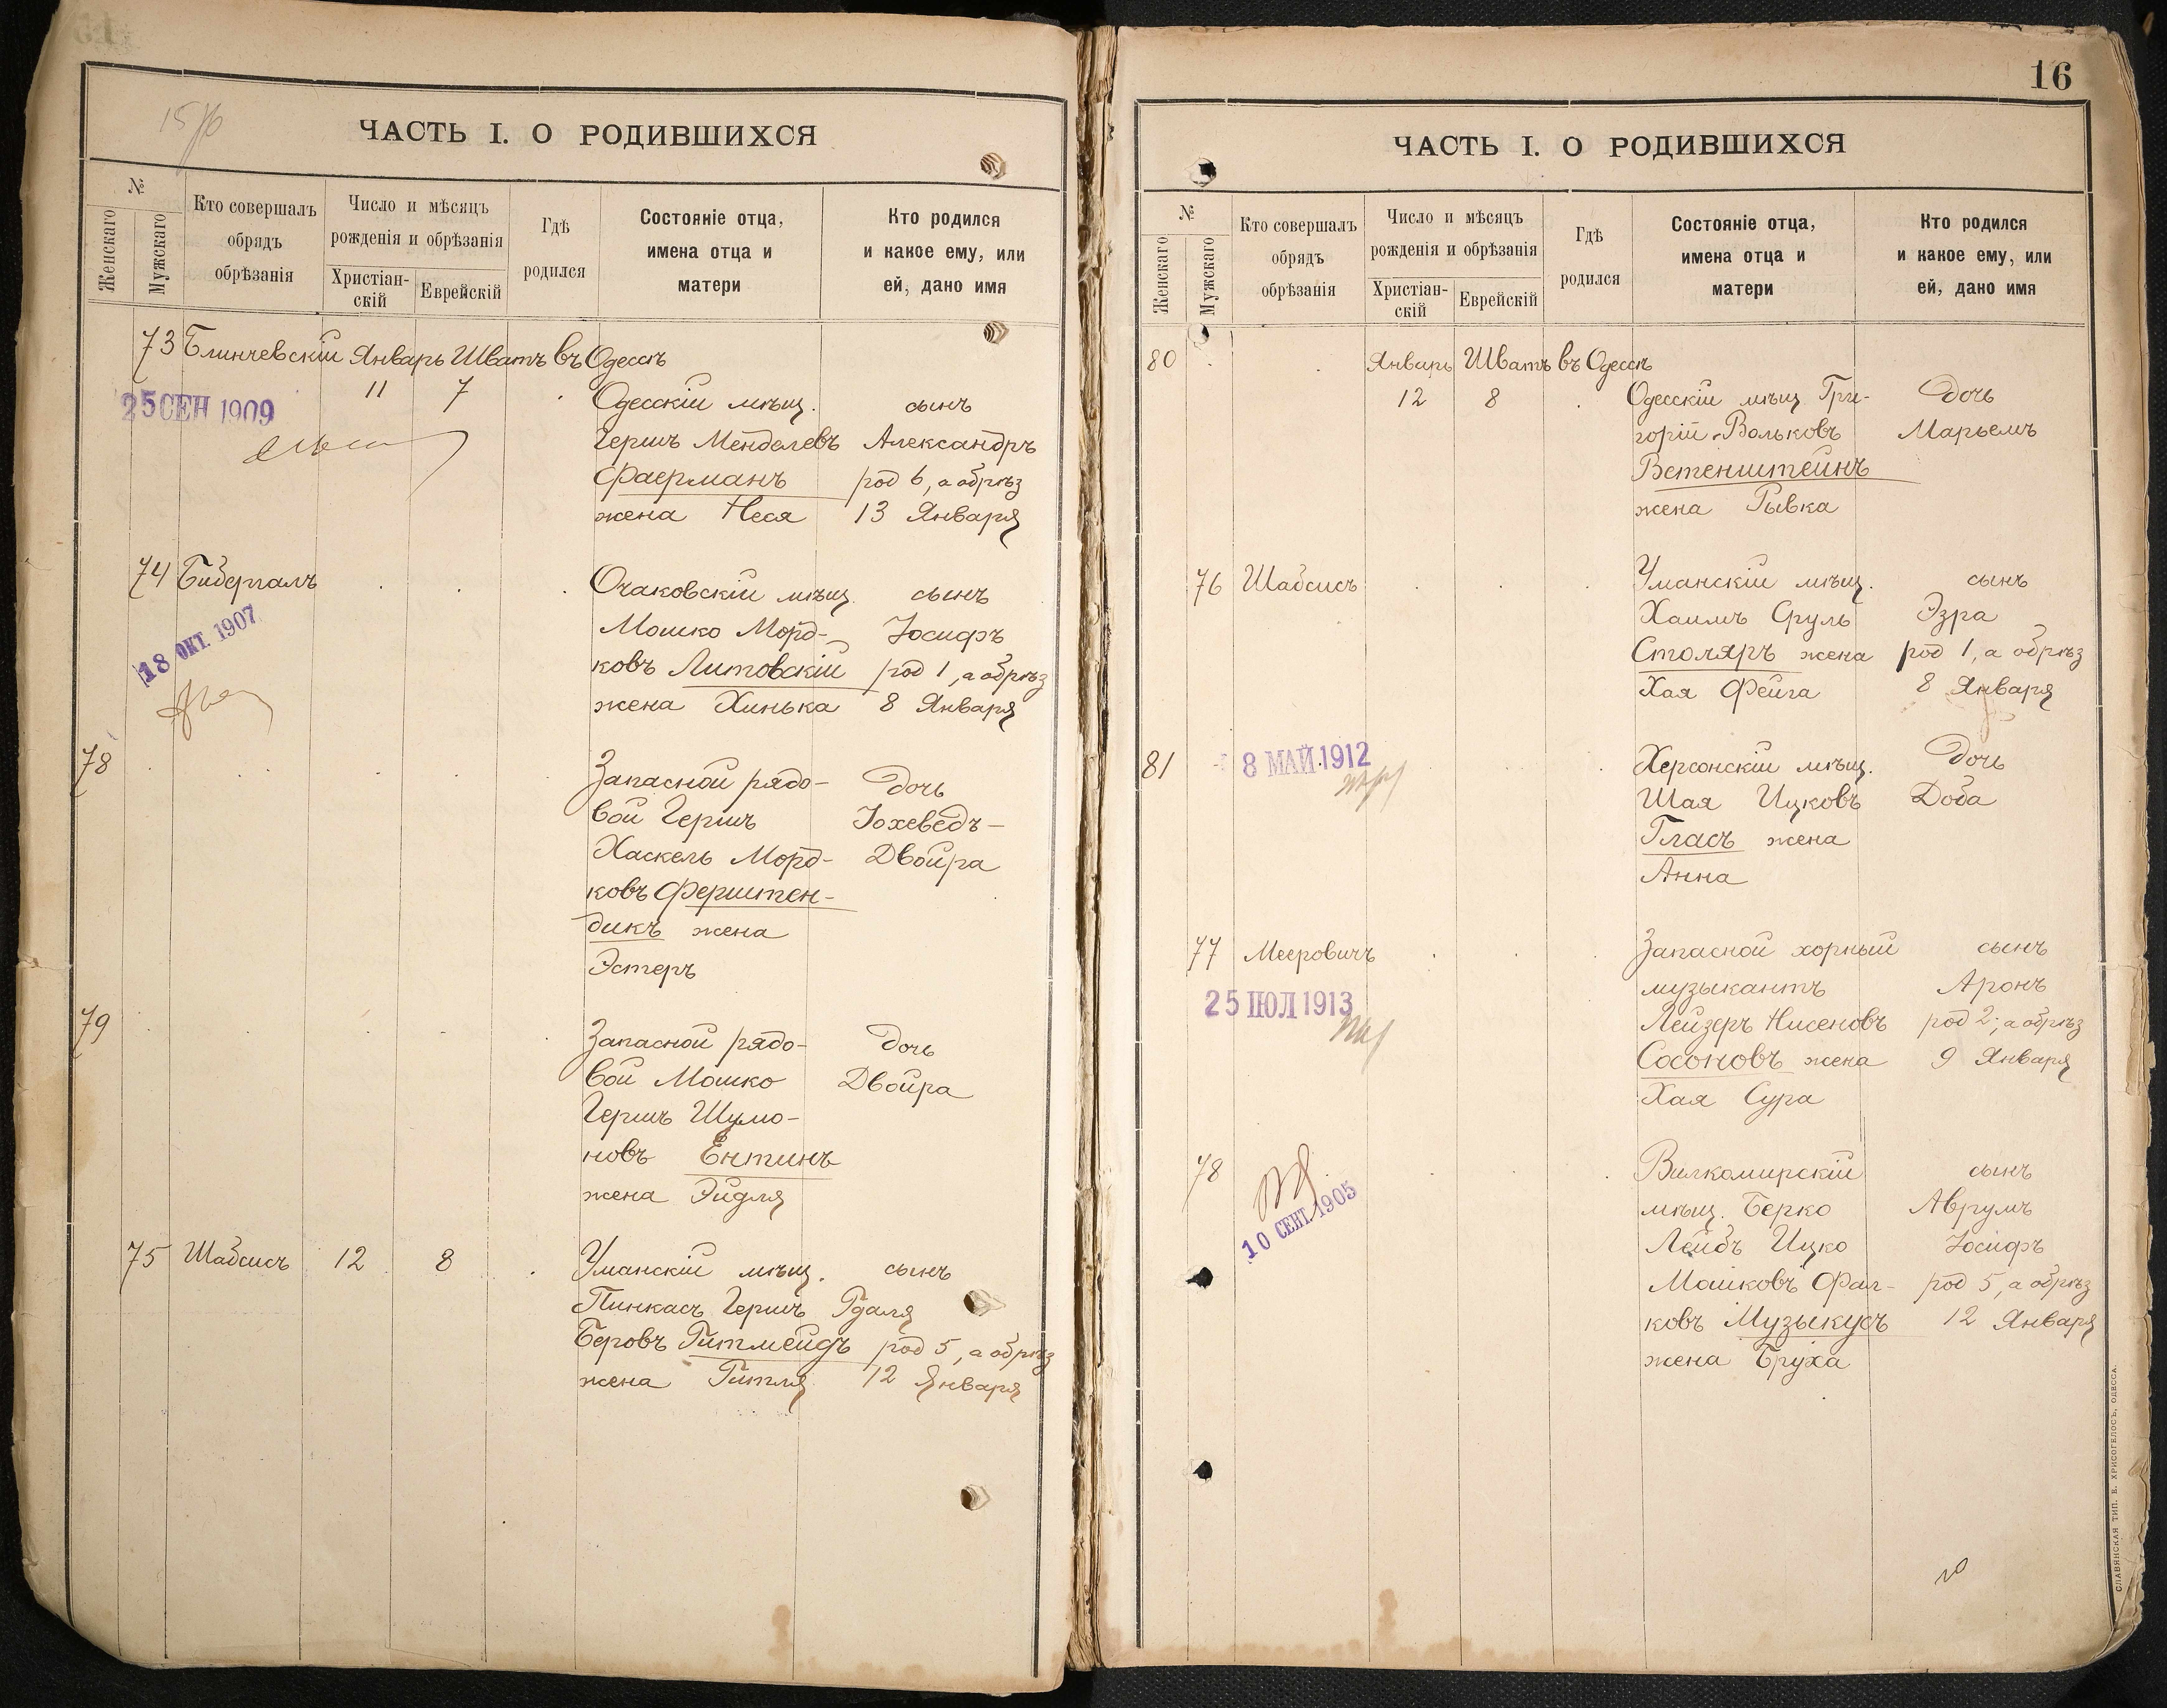 15 об
ЧАСТЬ I. О РОДИВШИХСЯ
№
Женскаго
Мужскаго
Кто совершалъ
обрядъ
обрѣзанія
Число и мѣсяцъ
рожденія и обрѣзанія
Христіан-
скій
Еврейскій
Гдѣ
родился
Состояніе отца,
имена отца и
матери
Кто родился
и какое ему, или
ей, дано имя
73 Блинчевскій Январь Шватъ въ Одессѣ
11 7 Одесскій мѣщ. сынъ
25 СЕН 1909
Гершъ Менделевъ Александръ
Фаерманъ род 6, а обрѣз
жена Неся 13 Января
74 Бибергалъ Очаковскій мѣщ. сынъ
18 ОКТ. 1907
Мошко Морд- Іосифъ
ковъ Литовскій род 1, а обрѣз
жена Хинька 8 Января
78 Запасной рядо- дочь
вой Гершъ Іохеведъ-
Хаскель Морд- Двойра
ковъ Ферштен-
дикъ жена
Эстеръ
79 Запасной рядо- дочь
вой Мошко Двойра
Гершъ Шумо-
новъ Ентинъ
жена Эйдля
75 Шабсисъ 12 8 Уманскій мѣщ. сынъ
Пинкасъ Гершъ Гдаля
Беровъ Гитмейдъ род 5, а обрѣз
жена Гитля 12 Января
16
ЧАСТЬ I. О РОДИВШИХСЯ
№
Женскаго
Мужскаго
Кто совершалъ
обрядъ
обрѣзанія
Число и мѣсяцъ
рожденія и обрѣзанія
Христіан-
скій
Еврейскій
Гдѣ
родился
Состояніе отца,
имена отца и
матери
Кто родился
и какое ему, или
ей, дано имя
80 Январь Шватъ въ Одессѣ
12 8 Одесскій мѣщ Гри- дочь
горій-Вольковъ Марьемъ
Ветенштейнъ
жена Рывка
76 Шабсисъ Уманскій мѣщ. сынъ
Хаимъ Сруль Эзра
Столяръ жена род 1, а обрѣз
Хая Фейга 8 Января
81 8 МАЙ 1912 Херсонскій мѣщ. дочь
Шая Ицковъ Доба
Гласъ жена
Анна
77 Мееровичъ Запасной хорный сынъ
музыкантъ Аронъ
25 ІЮЛ 1913
Лейзеръ Нисеновъ род 2, а обрѣз
Сосоновъ жена 9 Января
Хая Сура
78 Вилкомирскій сынъ
10 СЕНТ. 1905
мѣщ. Берко Аврумъ
Лейбъ Ицко Іосифъ
Мошковъ Фал- род 5, а обрѣз
ковъ Музыкусъ 12 Января
жена Бруха
СЛАВЯНСКАЯ ТИП. Е. ХРИСОГЕЛОСЪ, ОДЕССА.